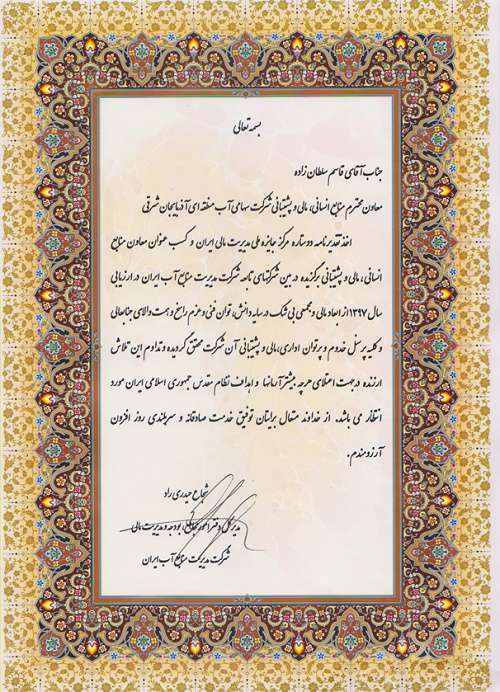 بسمه تعالی
جناب آقای قاسم سلطان زاده
معاون محترم منابع انسانی، مالی و پشتیبانی شرکت سهامی آب منطقه ای آذربایجان شرقی
اخذ تقدیرنامه دو ستاره مرکز جایزه ملی مدیریت مالی ایران و کسب عنوان معاون منابع
انسانی، مالی و پشتیبانی برگزیده در بین شرکتهای تابعه شرکت مدیریت منابع آب ایران در ارزیابی
سال ۱۳۹۷ از ابعاد مالی و مجمعی بی شک در سایه دانش، توان فنی و عزم راسخ و همت والای جنابعالی
و کلیه پرسنل خدوم و پرتوان اداری، مالی و پشتیبانی آن شرکت محقق گردیده و تداوم این تلاش
ارزنده در جهت اعتلای هرچه بیشتر آرمانها و اهداف نظام مقدس جمهوری اسلامی ایران مورد
انتظار می باشد. از خداوند متعال برایتان توفیق خدمت صادقانه و سربلندی روز افزون
آرزومندم.
شجاع حیدری راد
مدیر کل دفتر امور مجامع، بودجه و مدیریت مالی
شرکت مدیریت منابع آب ایران